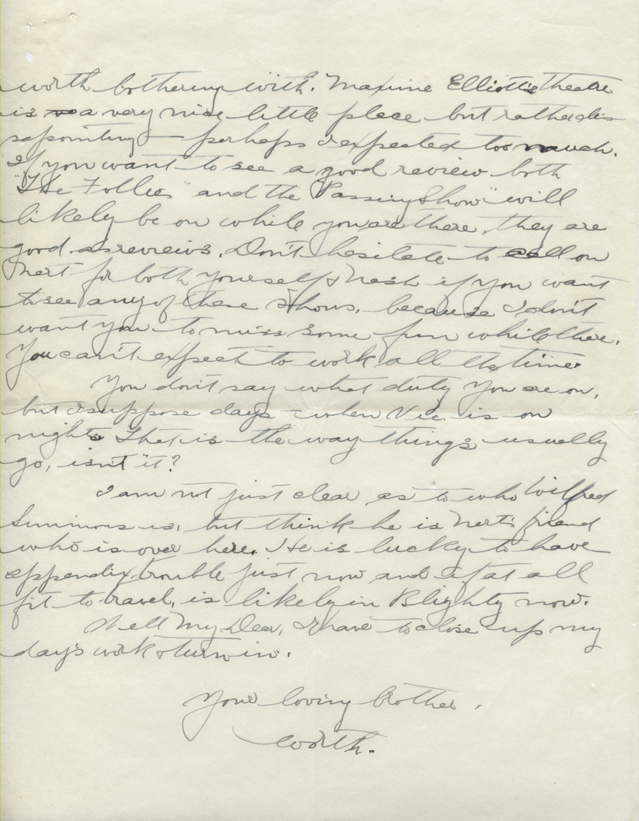 worth bothering with. Maxine Elliott's theatre
is a very nice little place but rather dis
appointing — perhaps I expected too much.
If you want to see a good review both
"The Follies" and the "Passing Show" will
likely be on while you are there, they are
good as reviews. Don't hesitate to call on
Mert for both yourself & Nesh if you want
to see any of these shows, because I don't
want you to miss some fun while there.
You can't expect to work all the time.
You don't say what duty you are on,
but I suppose days when Vic is on
nights. That is the way things usually
go, isn't it?
I am not just clear as to who Wilfred
Simmons is, but think he is Mert's friend
who is over here. He is lucky to have
appendix trouble just now and if at all
fit to travel, is likely in Blighty now.
Well My Dear, I have to close up my
days work & turn in.
Your loving brother,
Worth.